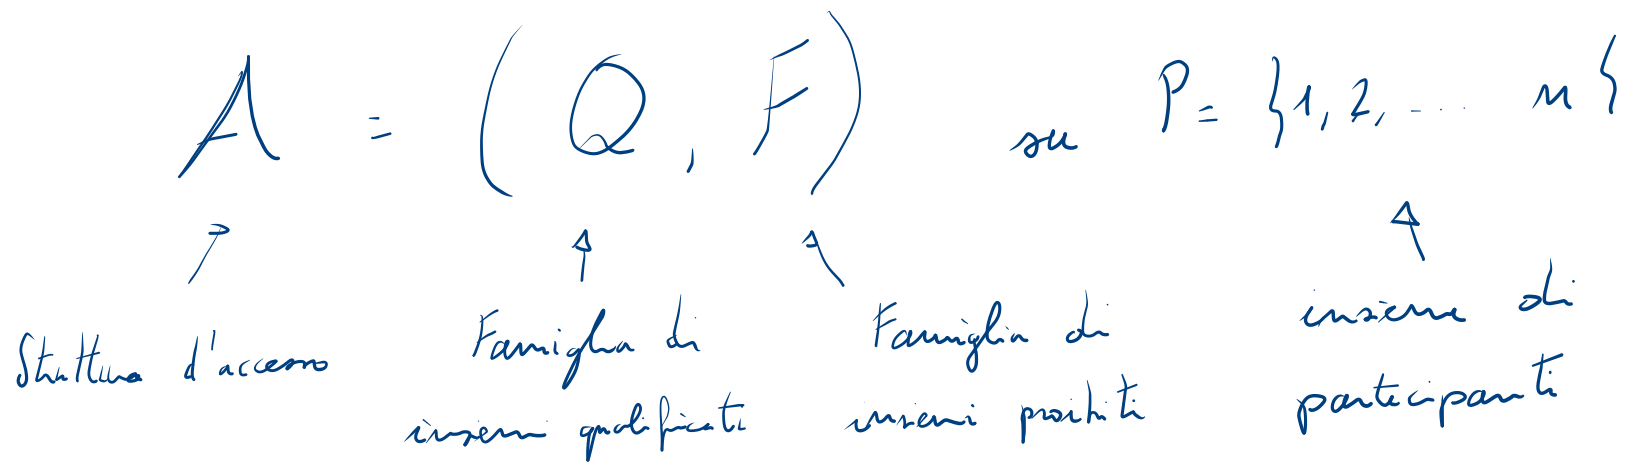 A = (Q, F) su P = {1, 2, ... n}
Struttura d'accesso
Famiglia di
insiemi qualificati
Famiglia di
insiemi proibiti
insieme di
partecipanti